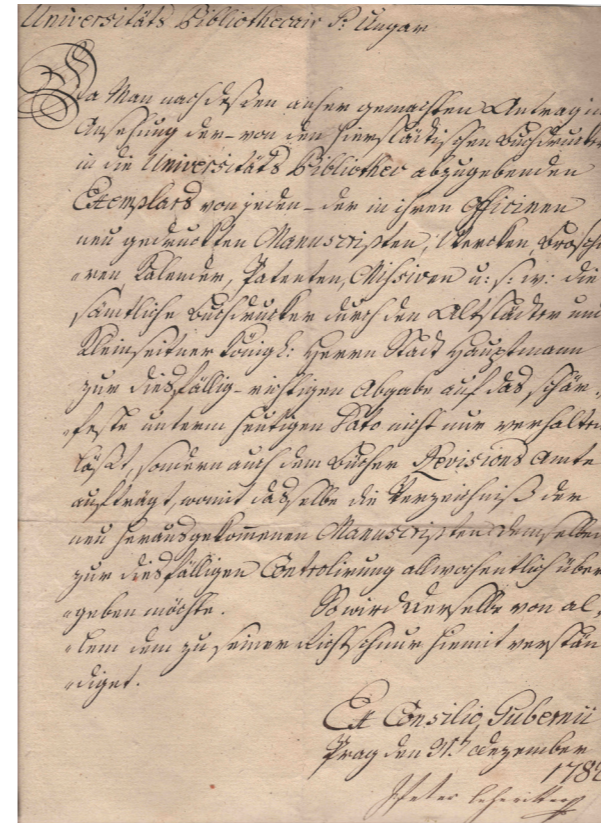 Universitäts Bibliothecair P: Ungar
Da Man nach deßen anher gemachten Antrag in
Ansehung der von den hierstädtischen Buchdrucker
in die Universitäts Bibliothec abzugebenden
Exemplars von jeden der in ihren Officinen
neu gedruckten Manuscripten, Wercken, Broschü
ren Kalender, Patenten, Missiven u: s: w: die
sämtliche Buchdrucker durch den Altstädter und
Kleinseitner Königl: Herrn Stadt Hauptmann
zur diesfällig-richtigen Abgabe auf das schär,
feste unterm heutigen Dato nicht nur verhalten
läßt, sondern auch dem Bücher Revisions Amte
aufträgt, womit dasselbe die Verzeichniß der
neu herausgekommenen Manuscripten demselben
zur diesfälligen Controlirung allwochentlich über
geben möchte. So wird Derselbe von al,
lem dem zu seiner Richtschnur hiemit verstän
diget.
Ex Consilio Gubernii
Prag den Dezember
178